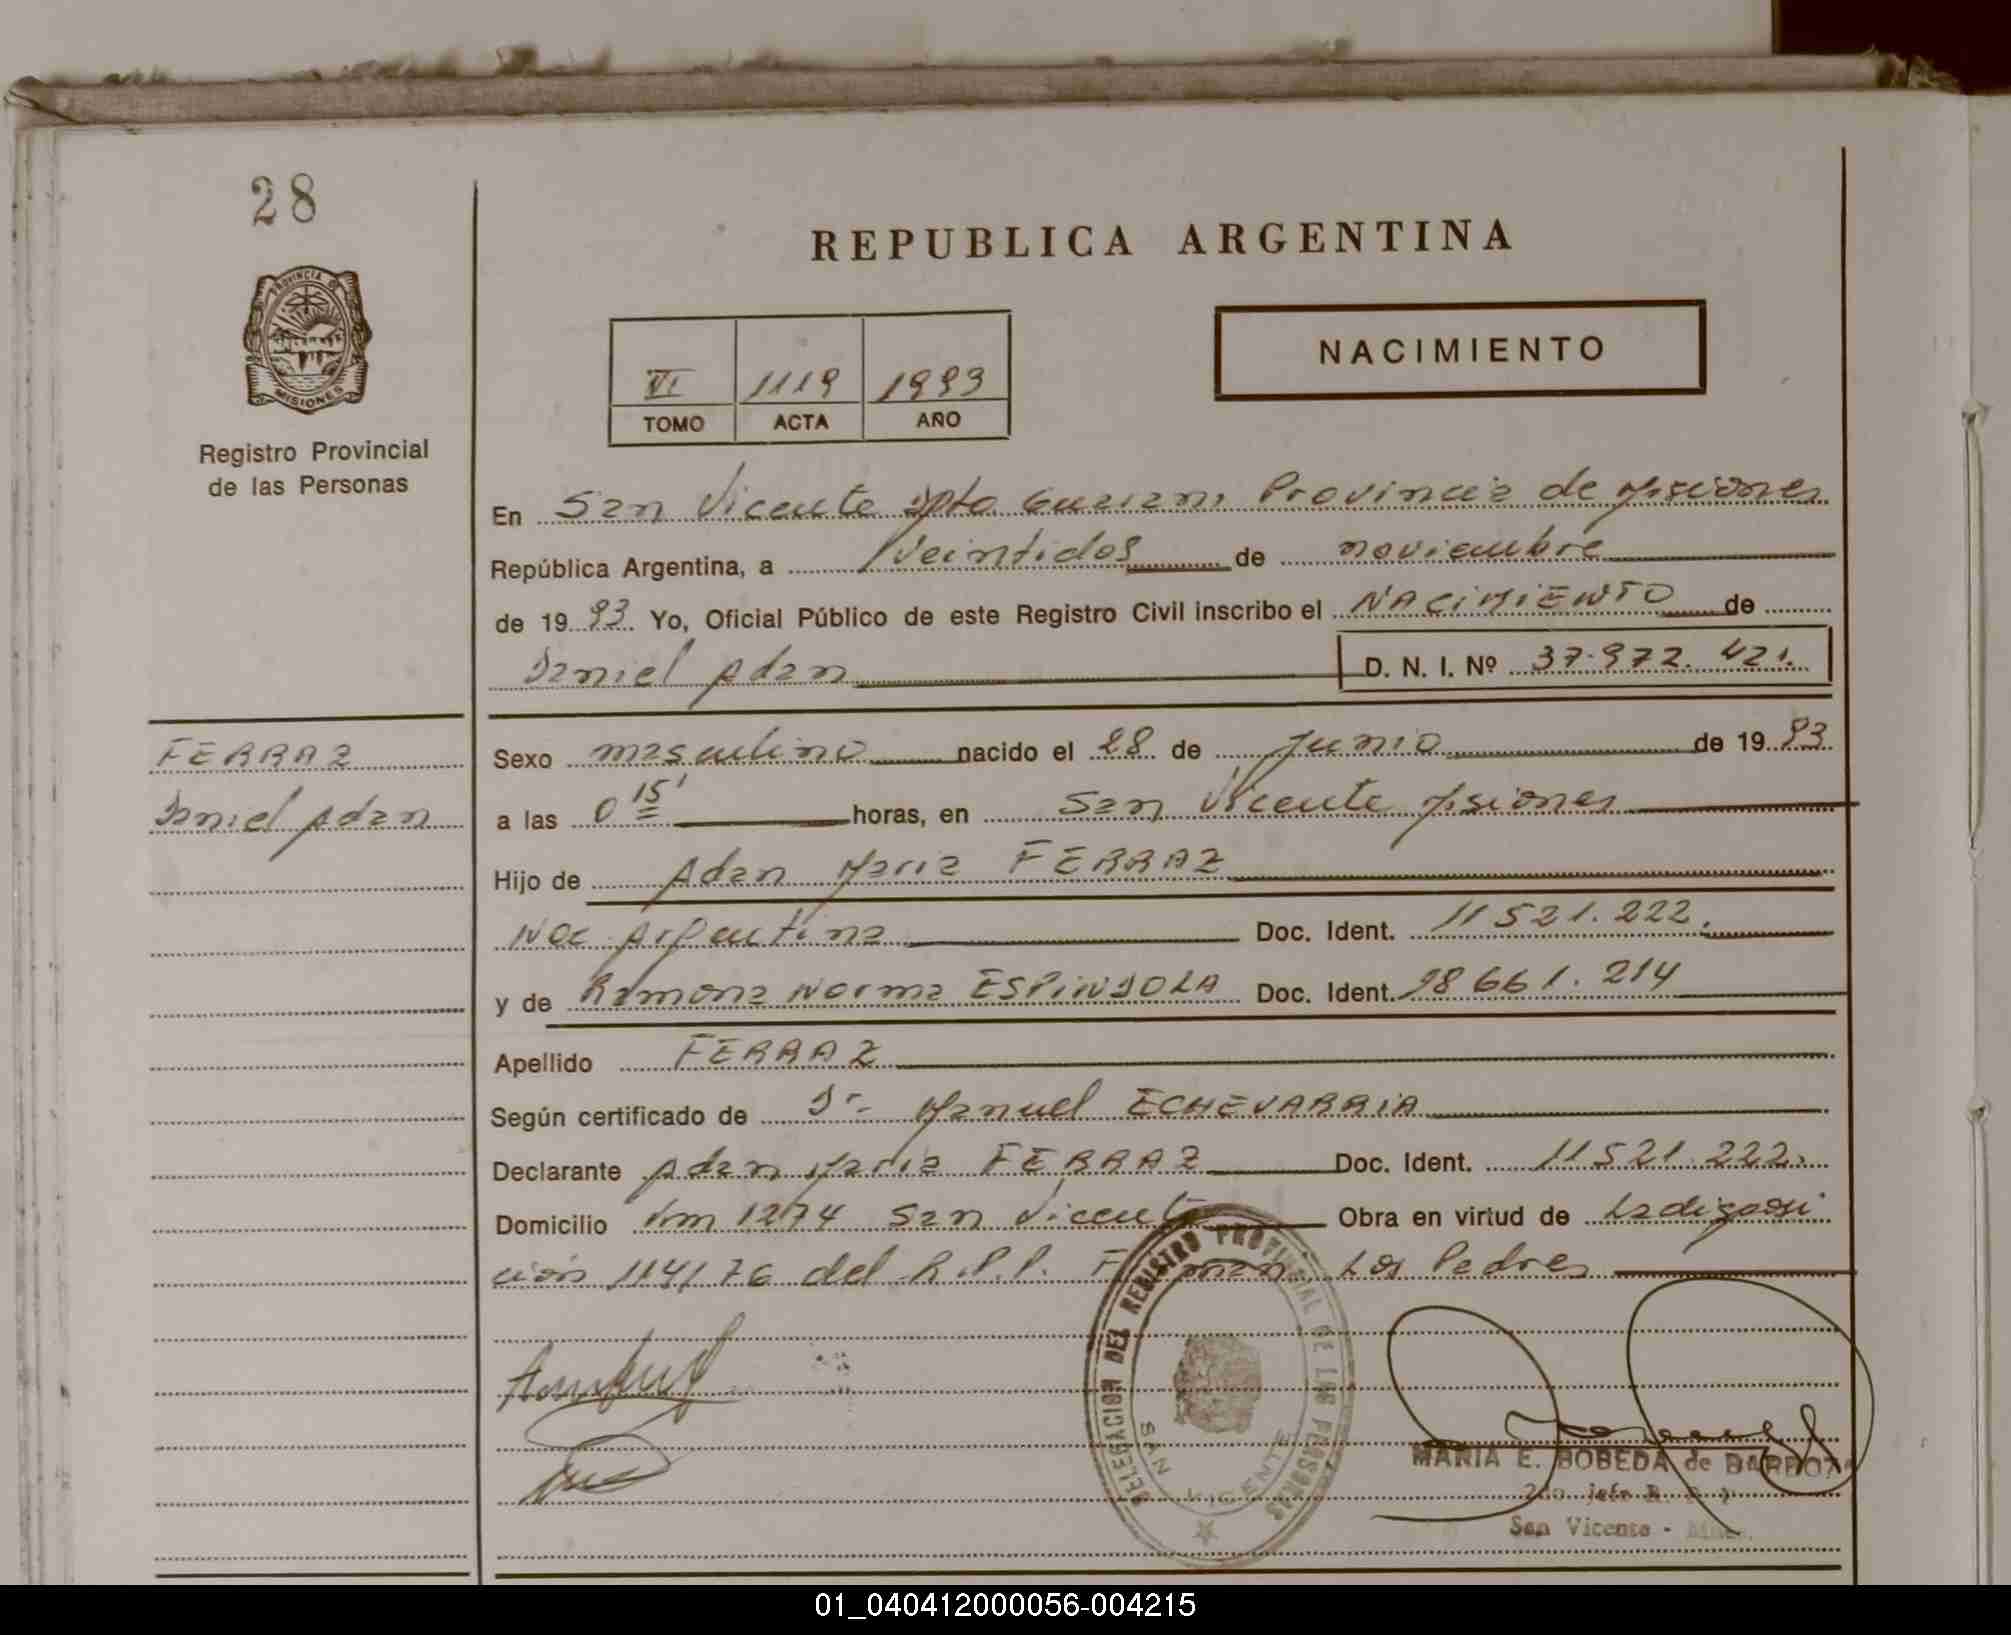 28
REPUBLICA ARGENTINA
PROVINCIA DE
MISIONES
Registro Provincial
de las Personas
NACIMIENTO
VI 1119 1993
TOMO ACTA AÑO
En San Vicente Dpto Guarani Provincia de Misiones
República Argentina, a Veintidos de noviembre
de 19 93 Yo, Oficial Público de este Registro Civil inscribo el NACIMIENTO de
Daniel Adan D. N. I. Nº 37.972.421.
FERRAZ
Daniel Adan
Sexo masculino nacido el 28 de Junio de 19 93
a las 0 15' horas, en San Vicente Misiones
Hijo de Adan Maria FERRAZ
Nac Argentina Doc. Ident. 11521.222.
y de Ramona Norma ESPINDOLA Doc. Ident. 28661.214
Apellido FERRAZ
Según certificado de Dr. Manuel ECHEVARRIA
Declarante Adan Maria FERRAZ Doc. Ident. 11521.222.
Domicilio km 1274 San Vicente Obra en virtud de La disposi
cion 114/76 del R.P.P. Firman Los Padres
DELEGACION DEL REGISTRO PROVINCIAL DE LAS PERSONAS
SAN VICENTE
MARIA E. BOBEDA de BARBOZA
2do. jefe R. P. P.
San Vicente - Mnes.
01_040412000056-004215